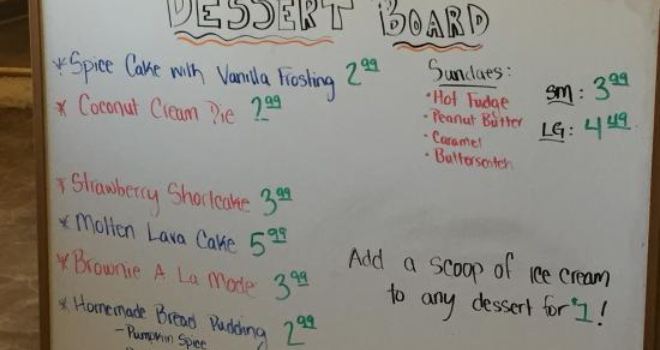 DESSERT BOARD
* Spice Cake with Vanilla Frosting 2.99
* Coconut Cream Pie 2.99
* Strawberry Shortcake 3.99
* Molten Lava Cake 5.99
* Brownie A La Mode 3.99
* Homemade Bread Pudding 2.99
- Pumpkin Spice
Sundaes:
• Hot Fudge
• Peanut Butter
• Caramel
• Butterscotch
SM: 3.99
LG: 4.49
Add a scoop of ice cream
to any dessert for $1!